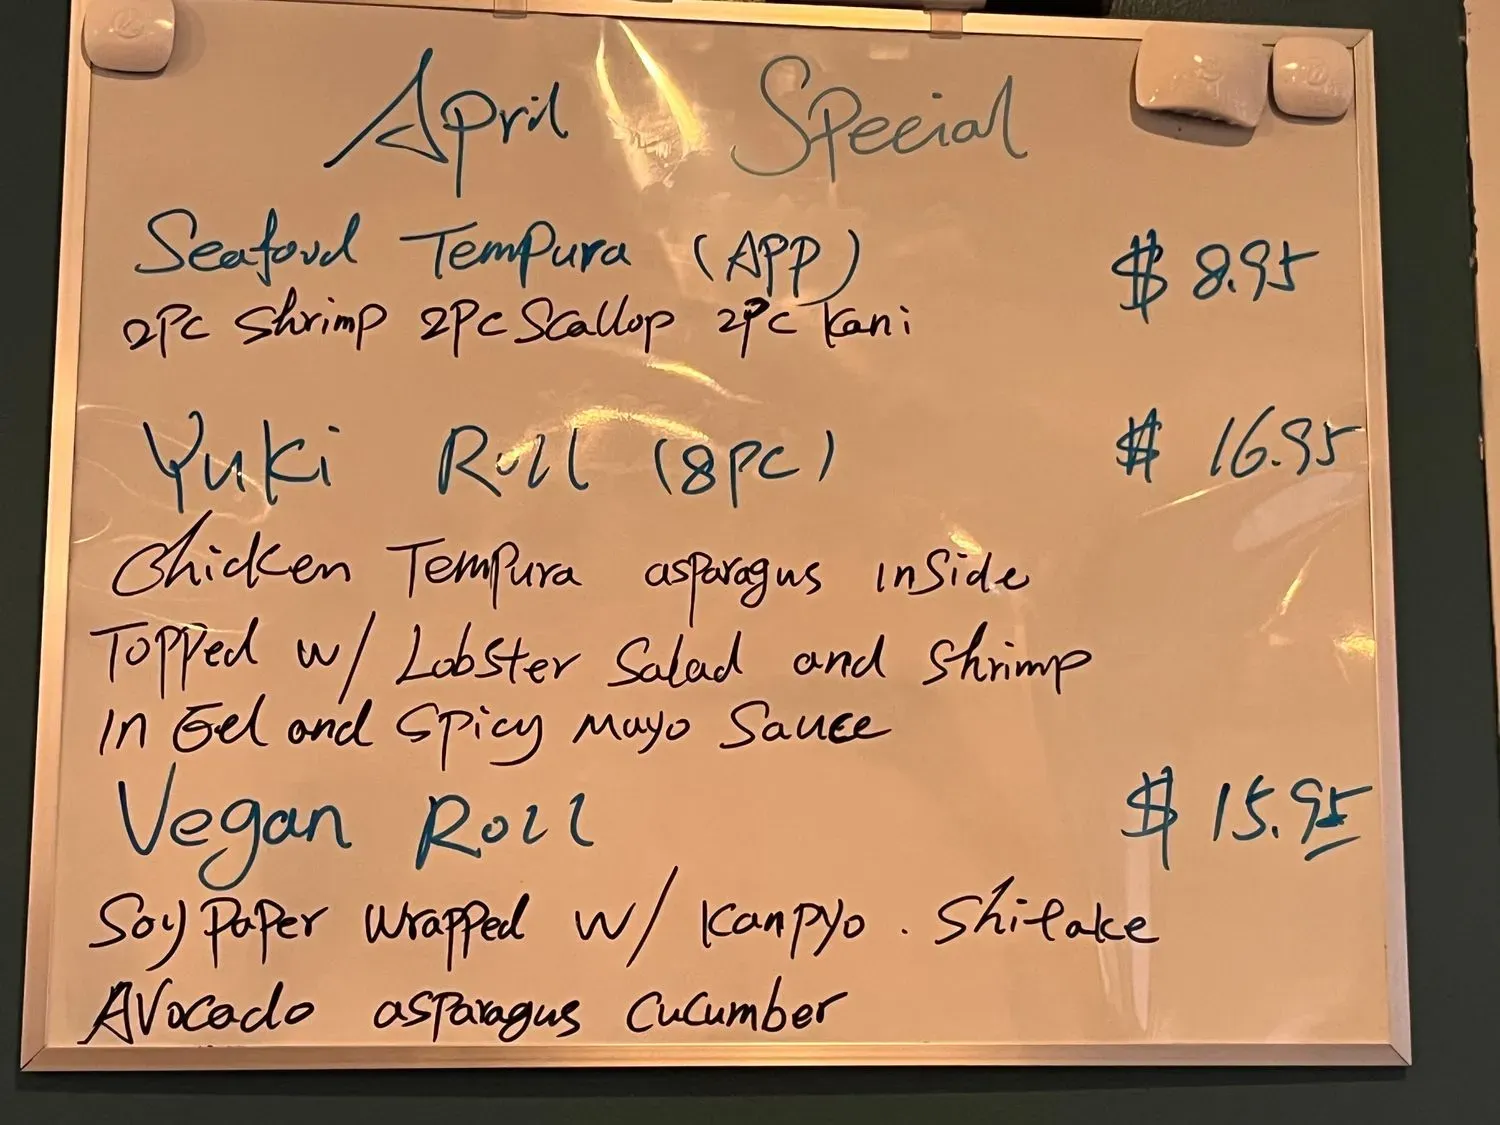 April Special
Seafood Tempura (APP) $ 8.95
2PC Shrimp 2PC Scallop 2PC Kani
Yuki Roll (8PC) $ 16.95
Chicken Tempura asparagus inside
Topped w/ Lobster Salad and Shrimp
in Eel and Spicy Mayo Sauce
Vegan Roll $ 15.95
Soy Paper wrapped w/ Kanpyo . Shitake
Avocado asparagus cucumber